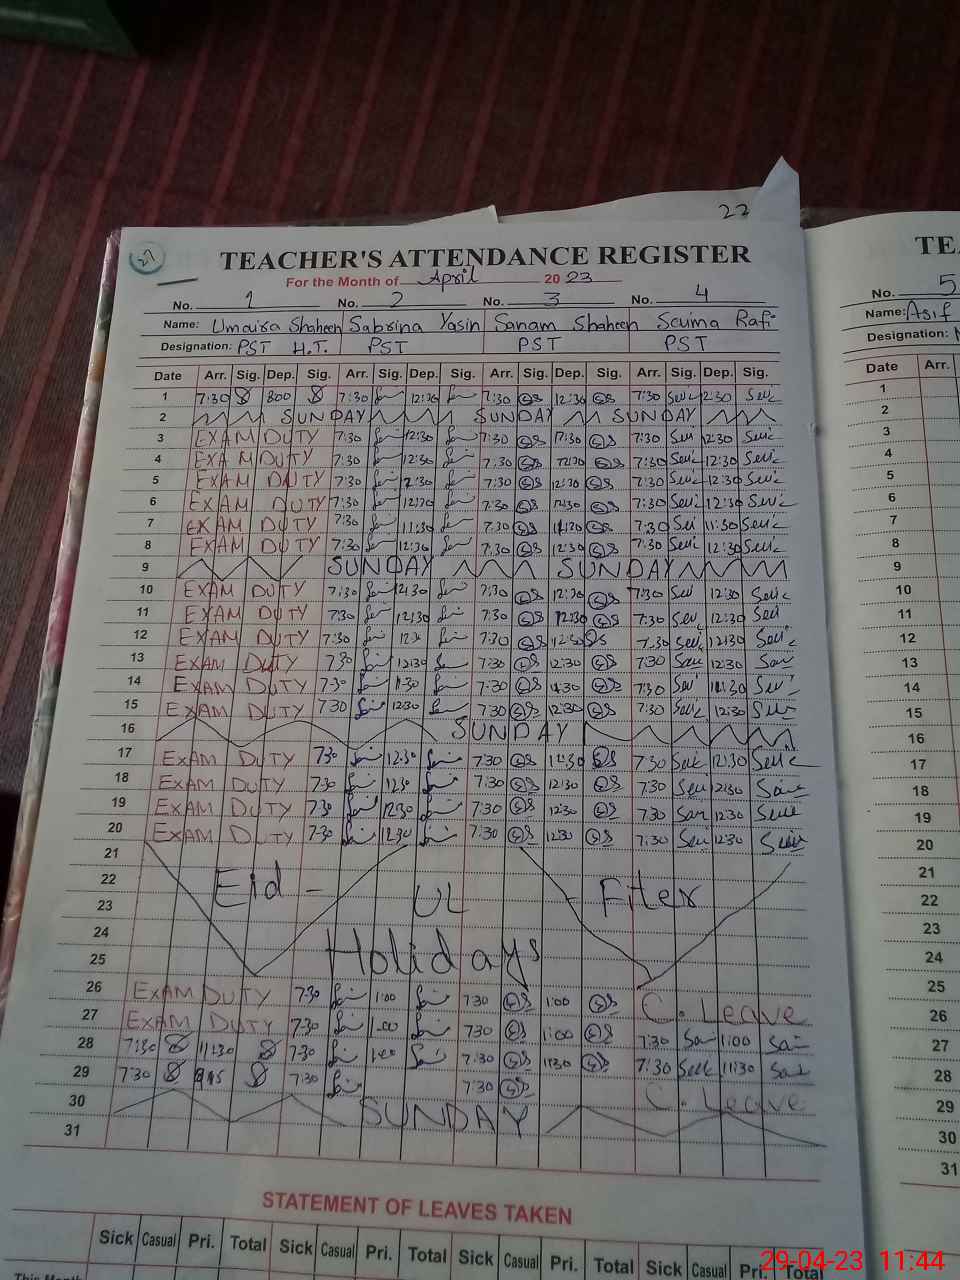 22
27
TEACHER'S ATTENDANCE REGISTER
For the Month of April 2023
No. 1 No. 2 No. 3 No. 4
Name: Umaira Shaheen Sabrina Yasin Sanam Shaheen Rafi
Designation: PST H.T. PST PST PST
Date Arr. Sig. Dep. Sig. Arr. Sig. Dep. Sig. Arr. Sig. Dep. Sig. Arr. Sig. Dep. Sig.
1 7:30 800 7:30 12:30 7:30 12:30 7:30 2:30
2 SUNDAY SUNDAY SUNDAY
3 EXAM DUTY 7:30 12:30 7:30 7:30 12:30
4 EXAM DUTY 7:30 12:30 7:30 7:30 12:30
5 EXAM DUTY 7:30 12:30 7:30 12:30 7:30 12:30
6 EXAM DUTY 7:30 7:30 12:30 7:30 12:30
7 EXAM DUTY 7:30 11:30 7:30 11:30 7:30 11:30
8 EXAM DUTY 7:30 12:30 7:30 12:30 7:30 12:30
9 SUNDAY SUNDAY
10 EXAM DUTY 7:30 12:30 7:30 12:30 7:30 12:30
11 EXAM DUTY 7:30 12:30 7:30 12:30 7:30 12:30
12 EXAM DUTY 7:30 7:30 12:30 7:30 12:30
13 EXAM DUTY 7:30 12:30 7:30 12:30 7:30 12:30
14 EXAM DUTY 7:30 11:30 7:30 11:30 7:30 11:30
15 EXAM DUTY 7:30 12:30 7:30 12:30 7:30 12:30
16 SUNDAY
17 EXAM DUTY 7:30 12:30 7:30 12:30 7:30 12:30
18 EXAM DUTY 7:30 12:30 7:30 12:30 7:30 12:30
19 EXAM DUTY 7:30 12:30 7:30 12:30 7:30 12:30
20 EXAM DUTY 7:30 12:30 7:30 12:30 7:30 12:30
21
22 Eid - UL - Fiter
23
24
25 Holidays
26 EXAM DUTY 7:30 1:00 7:30 1:00 C. Leave
27 EXAM DUTY 7:30 1:00 7:30 1:00 7:30 1:00
28 7:30 11:30 7:30 1:00 7:30 11:30 7:30 11:30
29 7:30 7:30 7:30 C. Leave
30 SUNDAY
31
STATEMENT OF LEAVES TAKEN
Sick Casual Pri. Total Sick Casual Pri. Total Sick Casual Pri. Total Sick Casual Pri. Total
This Month
TE
No. 5
Name: Asif
Designation:
Date Arr.
1
2
3
4
5
6
7
8
9
10
11
12
13
14
15
16
17
18
19
20
21
22
23
24
25
26
27
28
29
30
31
29-04-23 11:44